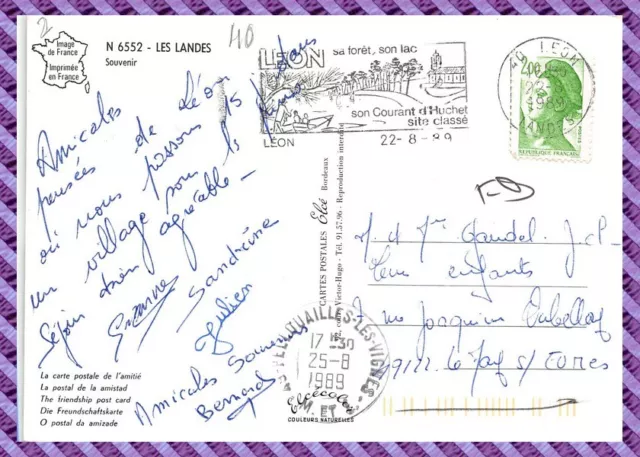 2
40
Image
de France
Imprimée
en France
N 6552 - LES LANDES
Souvenir
LEON
sa forêt, son lac
son Courant d'Huchet
site classé
LEON
22-8-89
40 LEON
LANDES
REPUBLIQUE FRANÇAISE
Amicales
pensées de Léon
où nous passons 15 jours dans
un village sous les pins
Séjour très agréable -
Suzanne Sandrine
Julien
Amicales Souvenirs
Bernard
CARTES POSTALES Elcé Bordeaux
Victor-Hugo - Tél. 91.57.96 - Reproduction interdite
M. et Mme Gaudel J.P
Leurs enfants
7 rue Joaquim Dubellay
49122 Le May s/ EVRES
PELLOUAILLES-LES-VIGNES
17 H 30
25-8
1989
M. ET L.
Elcécolor
COULEURS NATURELLES
La carte postale de l'amitié
La postal de la amistad
The friendship post card
Die Freundschaftskarte
O postal da amizade